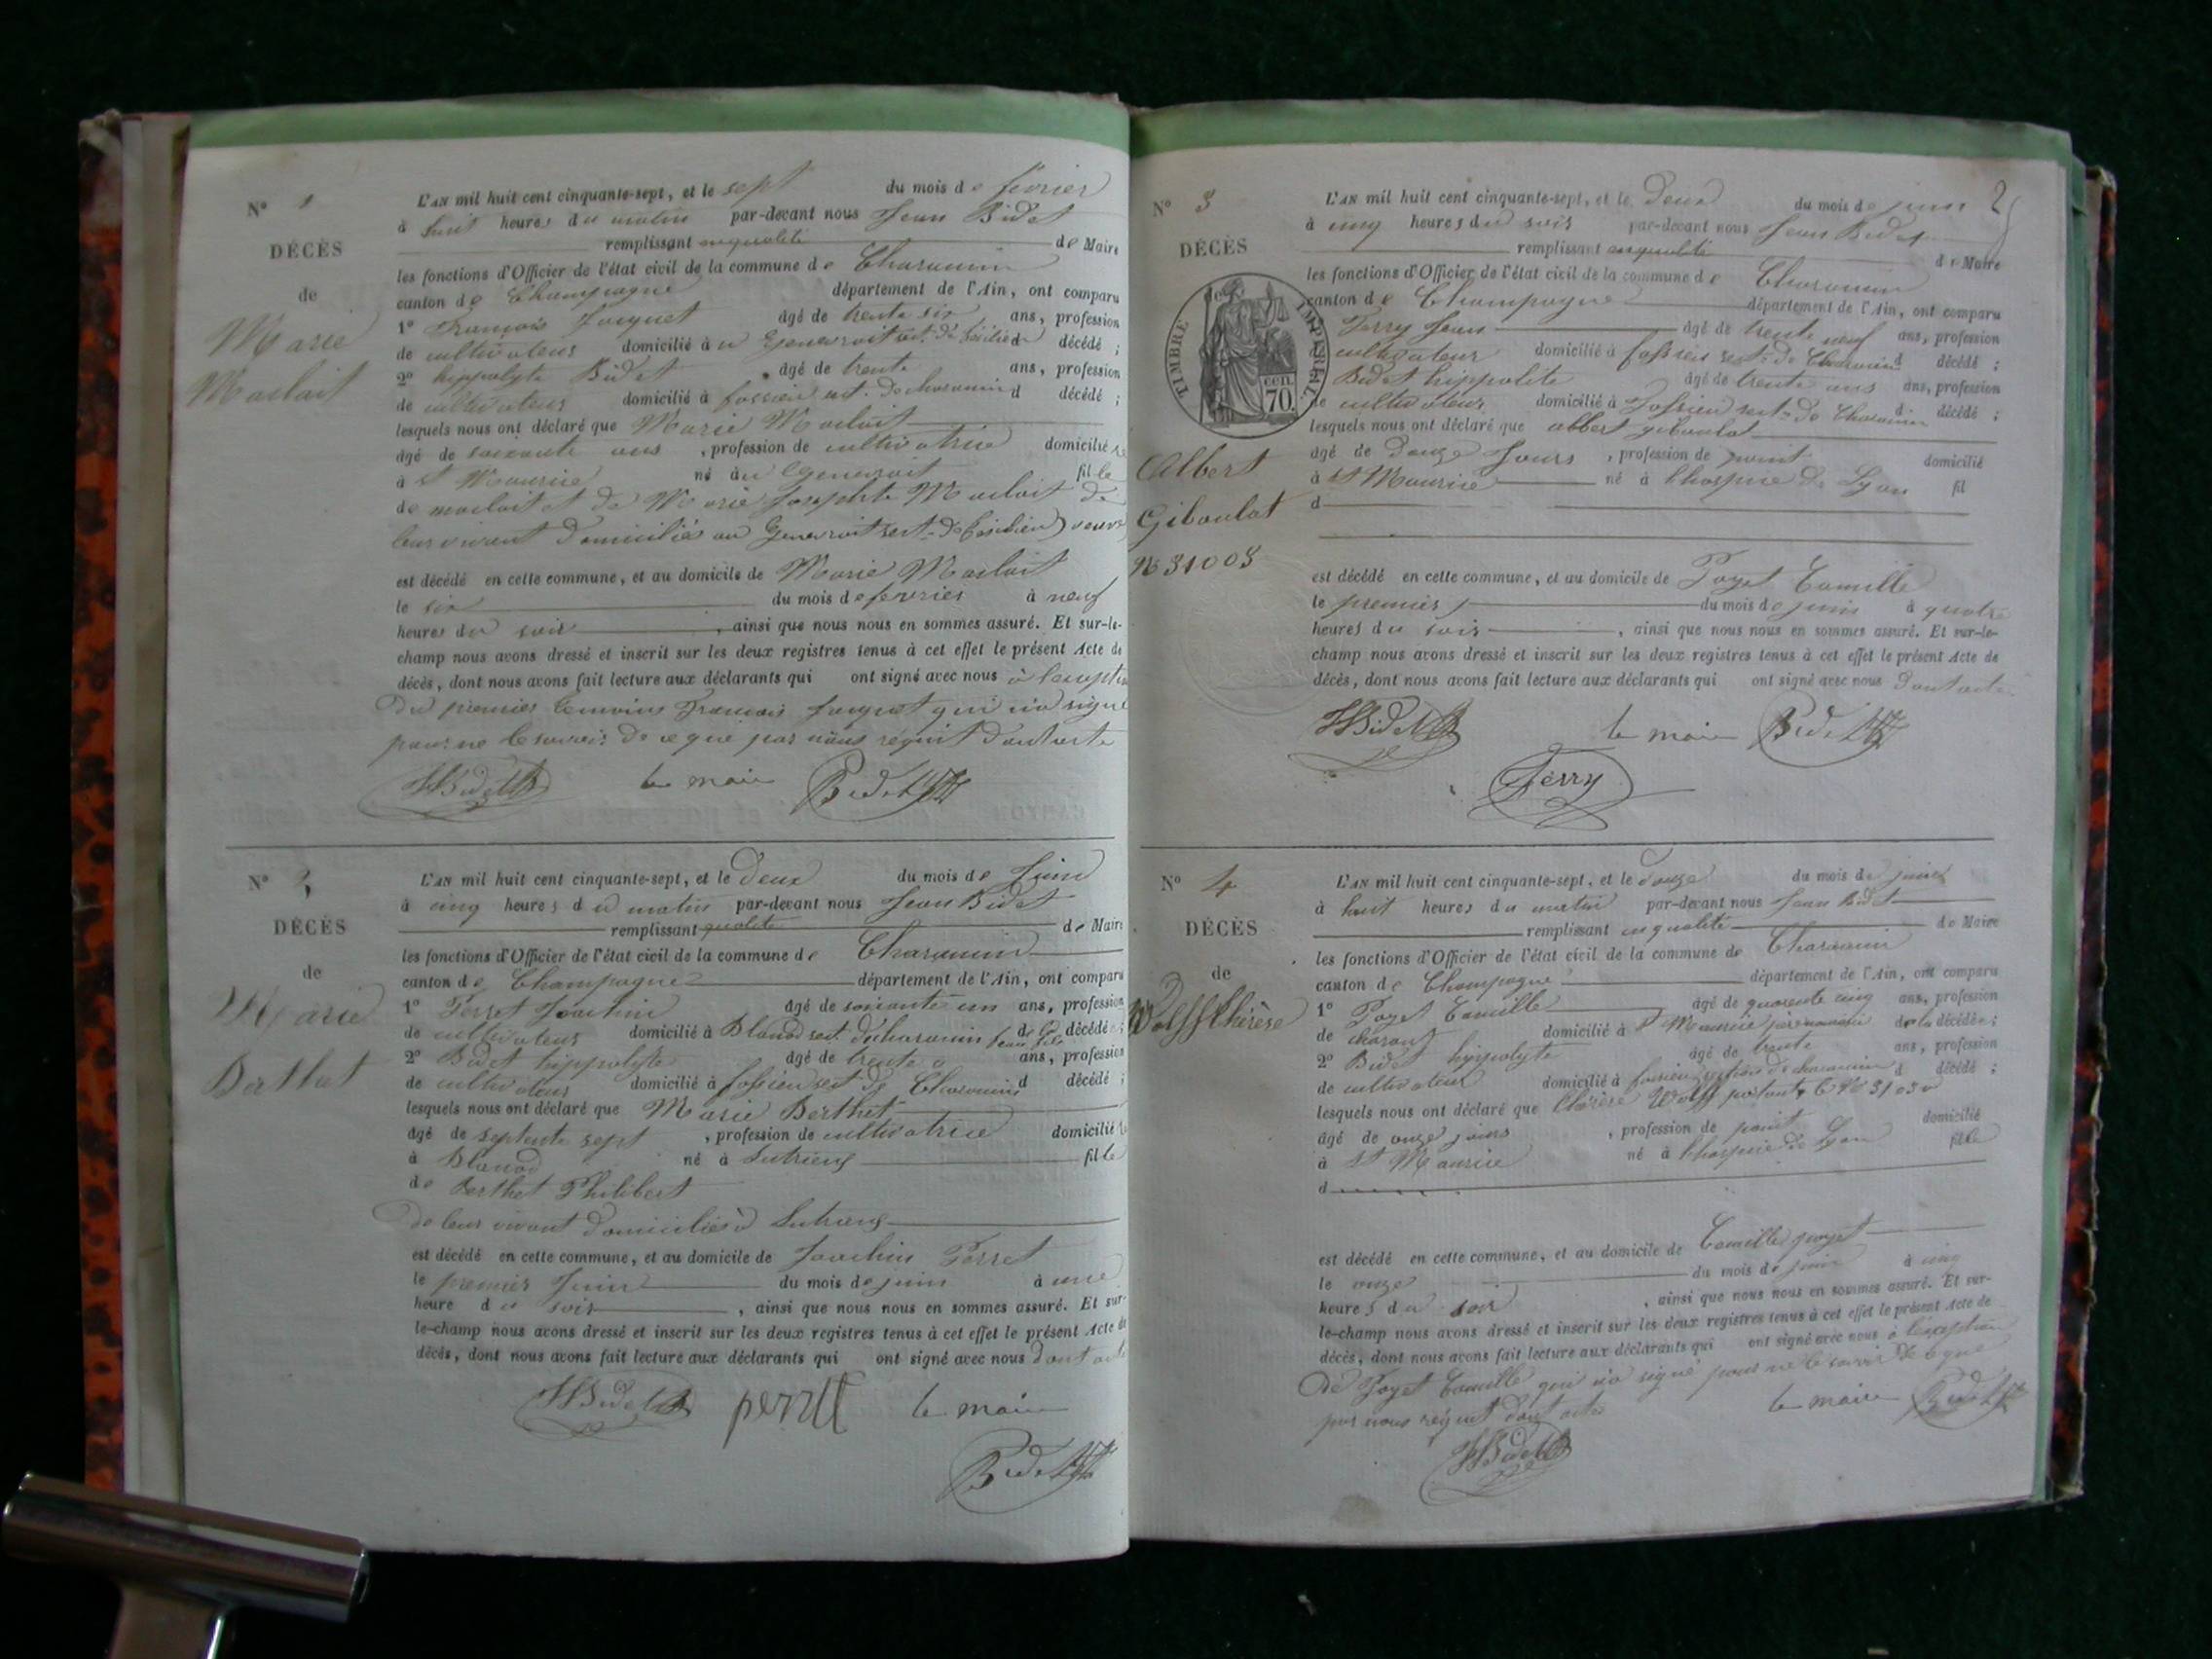 N° 1
DÉCÈS
de
Marie
Maclait
L'AN mil huit cent cinquante-sept, et le sept du mois de fevrier
à huit heures du matin par-devant nous Jean Bidet
remplissant enqualité de Maire
les fonctions d'Officier de l'état civil de la commune de Charancin
canton de Champagne département de l'Ain, ont comparu
1° François Jacquet âgé de trente six ans, profession
de cultivateur domicilié à décédé ;
2° hippolyte Bidet âgé de trente ans, profession
de cultivateur domicilié à fossieu sect. de charancin d décédé ;
lesquels nous ont déclaré que Marie Maclait
âgé de soixante ans, profession de cultivatrice domicilié
à St Maurice né au Genevrait fille
de maclait et de Marie Josephte Maclait de
leur vivant domicilié au Genevrait sect. veuve
est décédé en cette commune, et au domicile de Marie Maclait
le six du mois de fevrier à neuf
heures du soir, ainsi que nous nous en sommes assuré. Et sur-le-
champ nous avons dressé et inscrit sur les deux registres tenus à cet effet le présent Acte de
décès, dont nous avons fait lecture aux déclarants qui ont signé avec nous à l'exception
du premier temoins François Jacquet qui n'a signé
pour ne le savoir de ce que par nous requit dont acte
HBidet le maire Bidet
N°
DÉCÈS
de
Marie
Berthet
L'AN mil huit cent cinquante-sept, et le deux du mois de Juin
à cinq heures du matin par-devant nous Jean Bidet
remplissant qualité de Maire
les fonctions d'Officier de l'état civil de la commune de Charancin
canton de Champagne département de l'Ain, ont comparu
1° Perret Joachin âgé de soixante un ans, profession
de cultivateur domicilié à Blanod sect. de charancin décédé ;
2° Bidet hippolyte âgé de trente ans, profession
de cultivateur domicilié à fossieu sect de Charancin d décédé ;
lesquels nous ont déclaré que Marie Berthet
âgé de septente sept, profession de cultivatrice domicilié
à Blanod né à Lutrieng fille
de Berthet Philibert
de leur vivant domiciliés à Lutrieng
est décédé en cette commune, et au domicile de Joachin Perret
le premier Juin du mois de juin à une
heure du soir, ainsi que nous nous en sommes assuré. Et sur-
le-champ nous avons dressé et inscrit sur les deux registres tenus à cet effet le présent Acte de
décès, dont nous avons fait lecture aux déclarants qui ont signé avec nous dont acte
HBidet perret le maire
Bidet
2
N° 3
DÉCÈS
TIMBRE IMPÉRIAL
cen.
70.
Albert
Giboulat
N° 31003
L'AN mil huit cent cinquante-sept, et le Deux du mois de juin
à cinq heures du soir par-devant nous Jean Bidet
remplissant enqualité de Maire
les fonctions d'Officier de l'état civil de la commune de Charancin
canton de Champagne département de l'Ain, ont comparu
Ferry Jean âgé de trente neuf ans, profession
cultivateur domicilié à fossieu sect. de Charancin d décédé ;
Bidet hippolite âgé de trente ans ans, profession
de cultivateur domicilié à Fossieu sect. de Charancin d décédé ;
lesquels nous ont déclaré que albert giboulat
âgé de douze Jours, profession de point domicilié
à St Maurice né à l'hospice de Lyon fil
d
est décédé en cette commune, et au domicile de Poget Camille
le premier du mois de juin à quatre
heures du soir, ainsi que nous nous en sommes assuré. Et sur-le-
champ nous avons dressé et inscrit sur les deux registres tenus à cet effet le présent Acte de
décès, dont nous avons fait lecture aux déclarants qui ont signé avec nous dont acte
HBidet le maire Bidet
Ferry
N° 4
DÉCÈS
de
Wolff thérèse
L'AN mil huit cent cinquante-sept, et le douze du mois de juin
à huit heures du matin par-devant nous Jean Bidet
remplissant enqualité de Maire
les fonctions d'Officier de l'état civil de la commune de Charancin
canton de Champagne département de l'Ain, ont comparu
1° Poget Camille âgé de quarente cinq ans, profession
de charont domicilié à St Maurice père nourricier de la décédée ;
2° Bidet hyppolyte âgé de trente ans, profession
de cultivateur domicilié à fossieu section de charancin d décédé ;
lesquels nous ont déclaré que thérèse Wolff portant le N° 31030
âgé de onze jours, profession de point domicilié
à St Maurice né à l'hospice de Lyon fille
d
est décédé en cette commune, et au domicile de Camille poget
le onze du mois de juin à cinq
heures du soir, ainsi que nous nous en sommes assuré. Et sur-
le-champ nous avons dressé et inscrit sur les deux registres tenus à cet effet le présent Acte de
décès, dont nous avons fait lecture aux déclarants qui ont signé avec nous à l'exception
de Poget Camille qui n'a signé pour ne le savoir de ce que
par nous requit dont acte le maire Bidet
HBidet